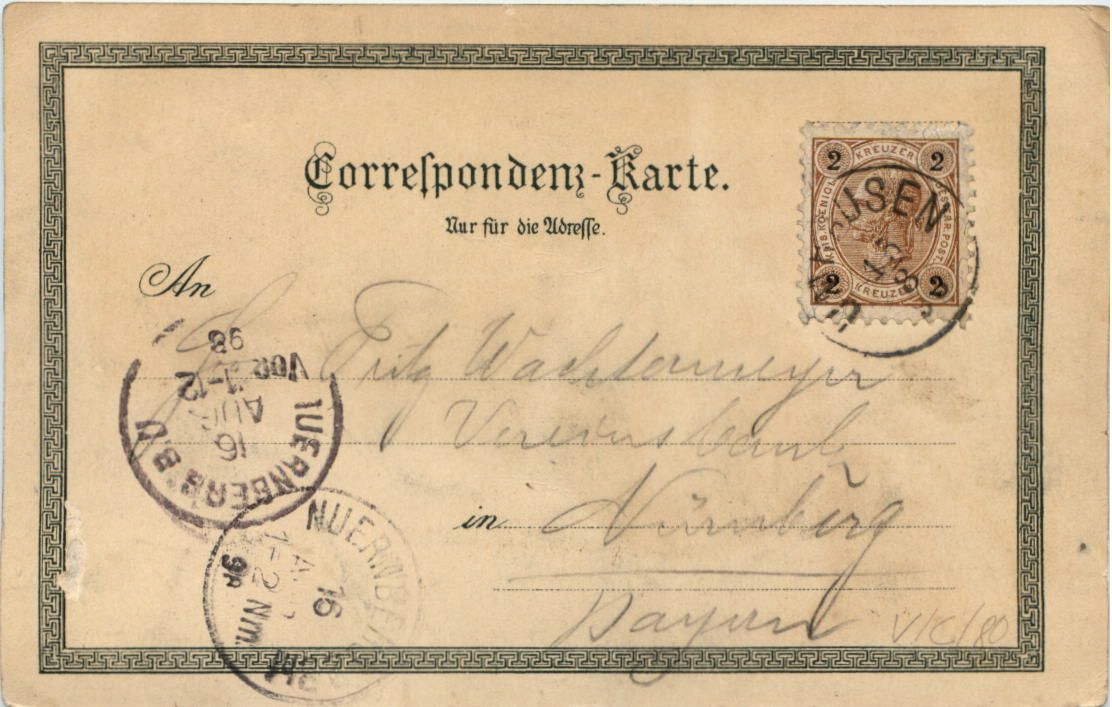 Correspondenz-Karte.
Nur für die Adresse.
2 KREUZER 2
KAIS. KOENIGL. OESTERR. POST.
2 KREUZER 2
USEN
15
8
An
Fritz Wachtermeyer
Vereinsbank
in Nürnberg
Bayern
NUERNBERG B.H
16
AUG
VOR 11-12
98
NUERNBERG
16
1-2 Nm.
98
VIC/80